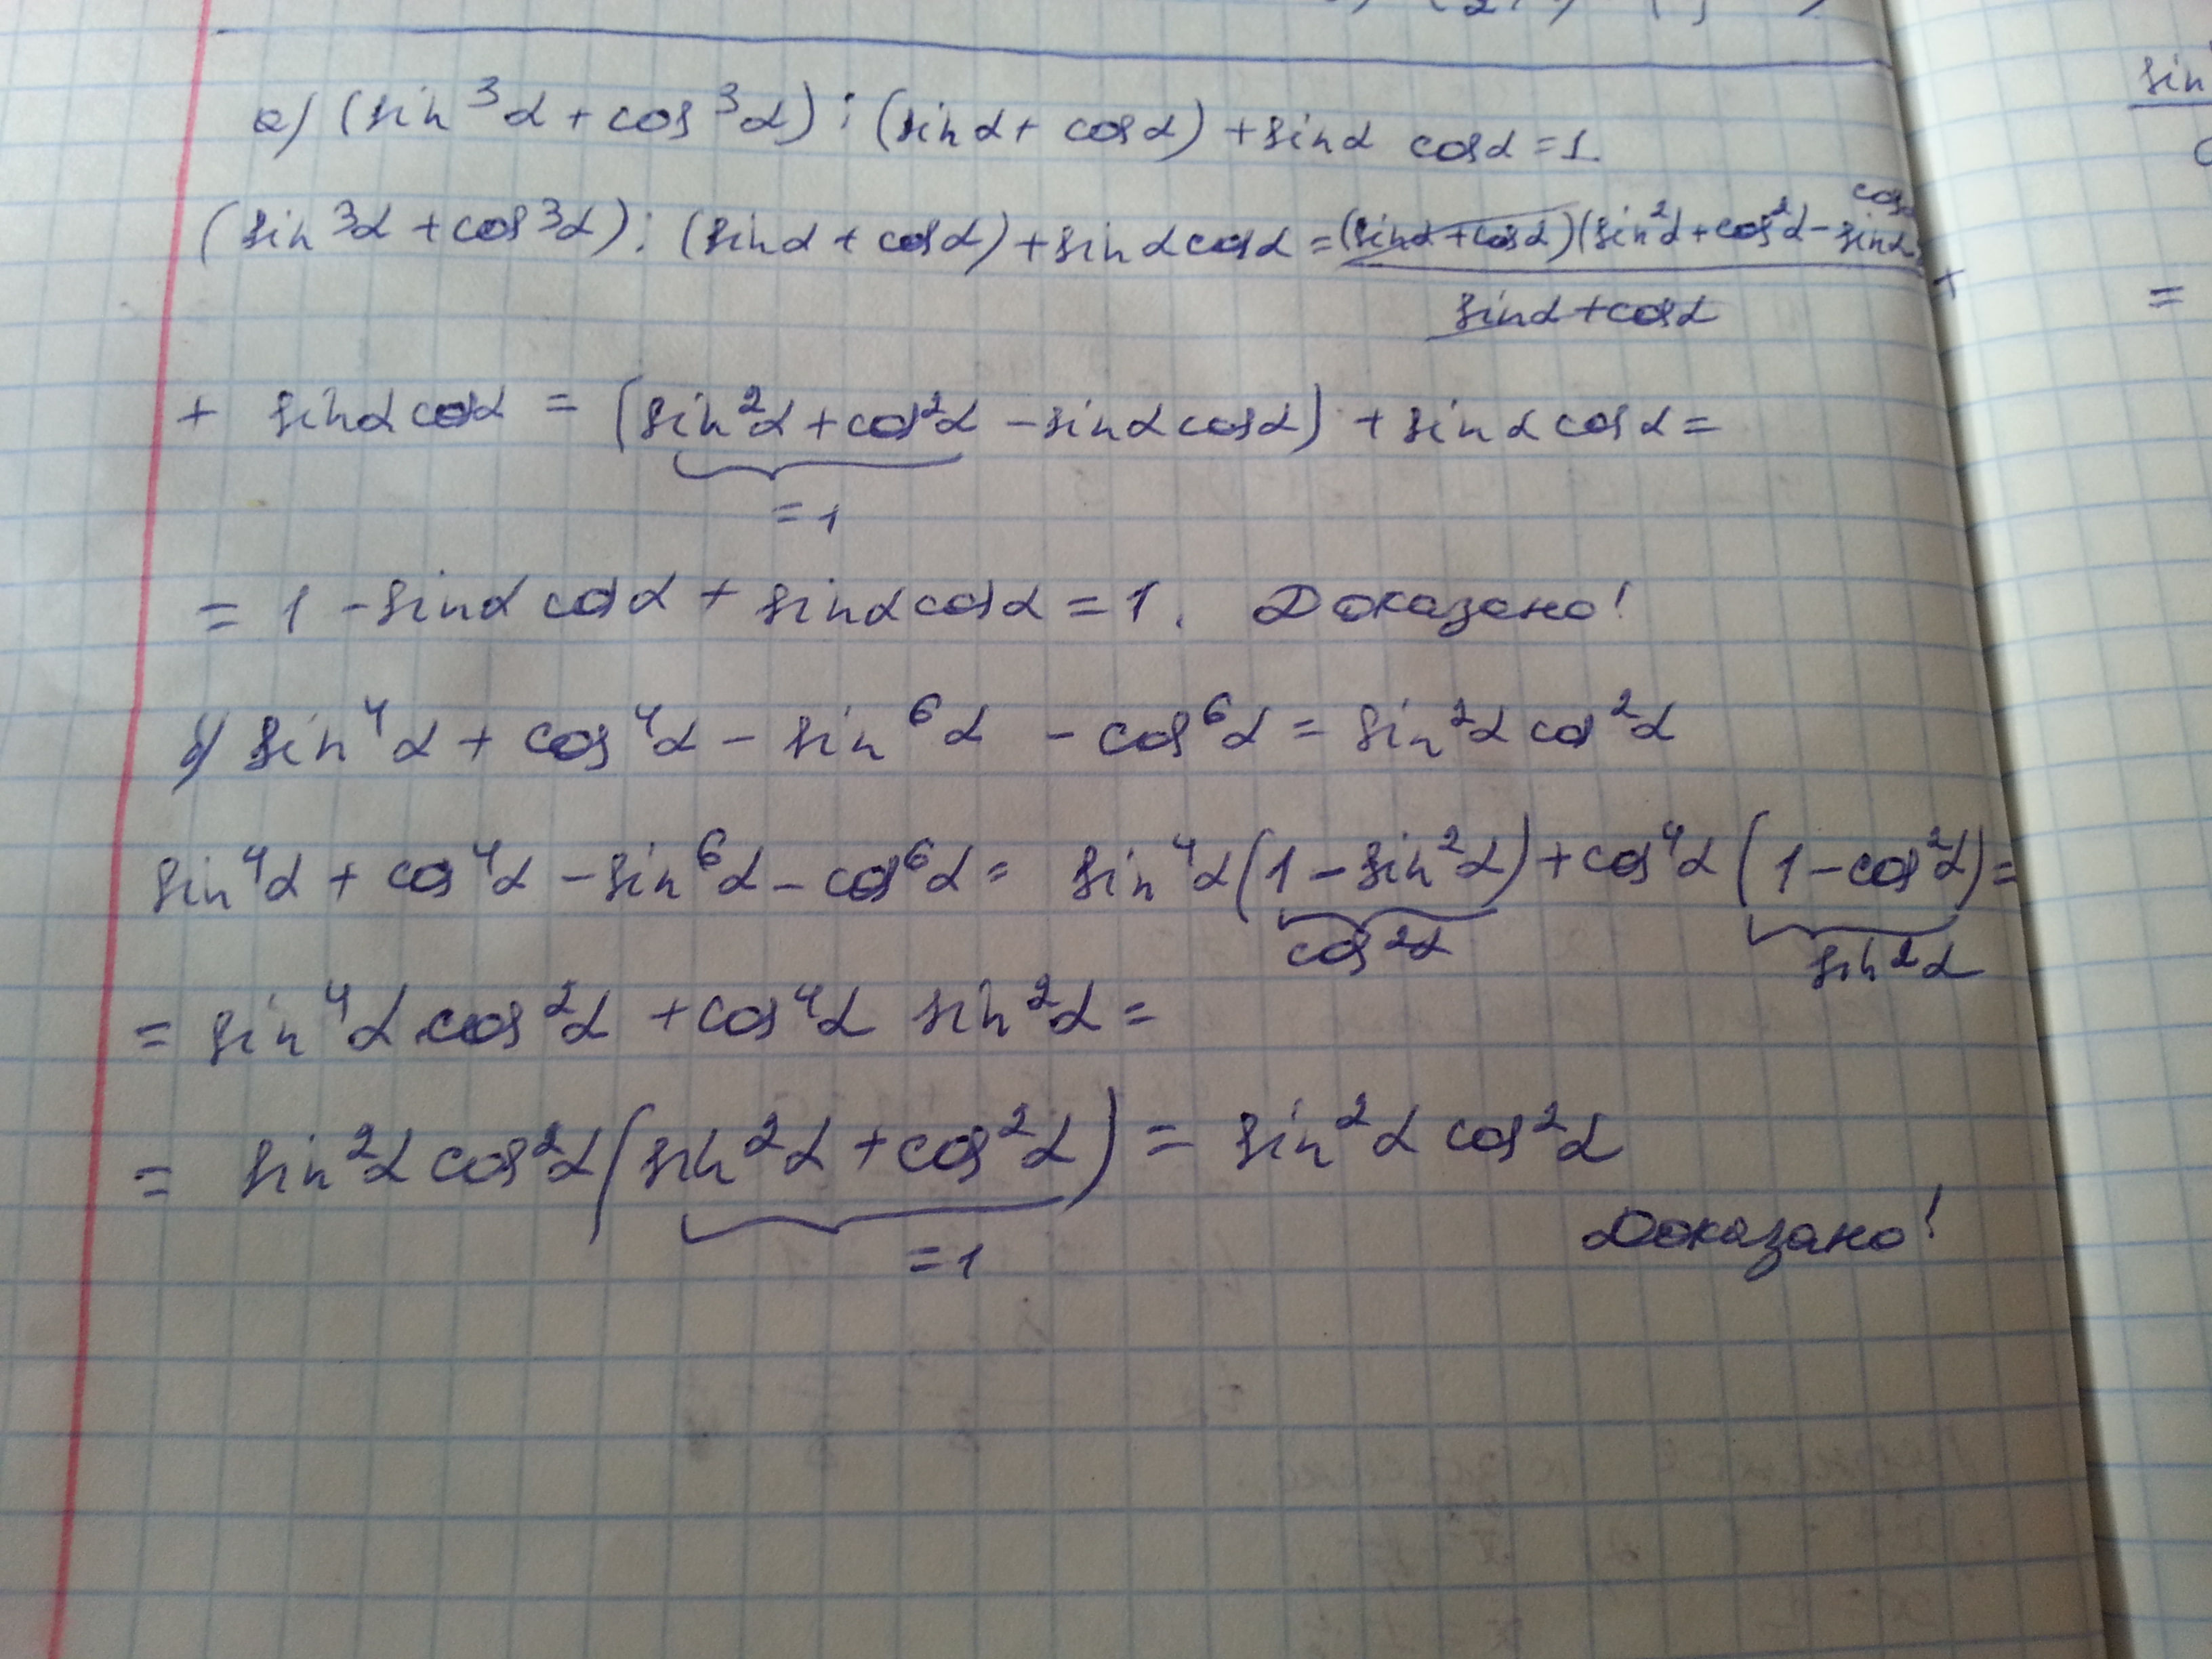 а) (sin³α + cos³α) : (sinα + cosα) + sinα cosα = 1.
(sin³α + cos³α) : (sinα + cosα) + sinα cosα = (sinα + cosα)(sin²α + cos²α - sinα cosα) +
sinα + cosα
+ sinα cosα = (sin²α + cos²α - sinα cosα) + sinα cosα =
= 1
= 1 - sinα cosα + sinα cosα = 1. Доказано!
б) sin⁴α + cos⁴α - sin⁶α - cos⁶α = sin²α cos²α
sin⁴α + cos⁴α - sin⁶α - cos⁶α = sin⁴α (1 - sin²α) + cos⁴α (1 - cos²α) =
cos²α sin²α
= sin⁴α cos²α + cos⁴α sin²α =
= sin²α cos²α (sin²α + cos²α) = sin²α cos²α
= 1
Доказано!
sin
=